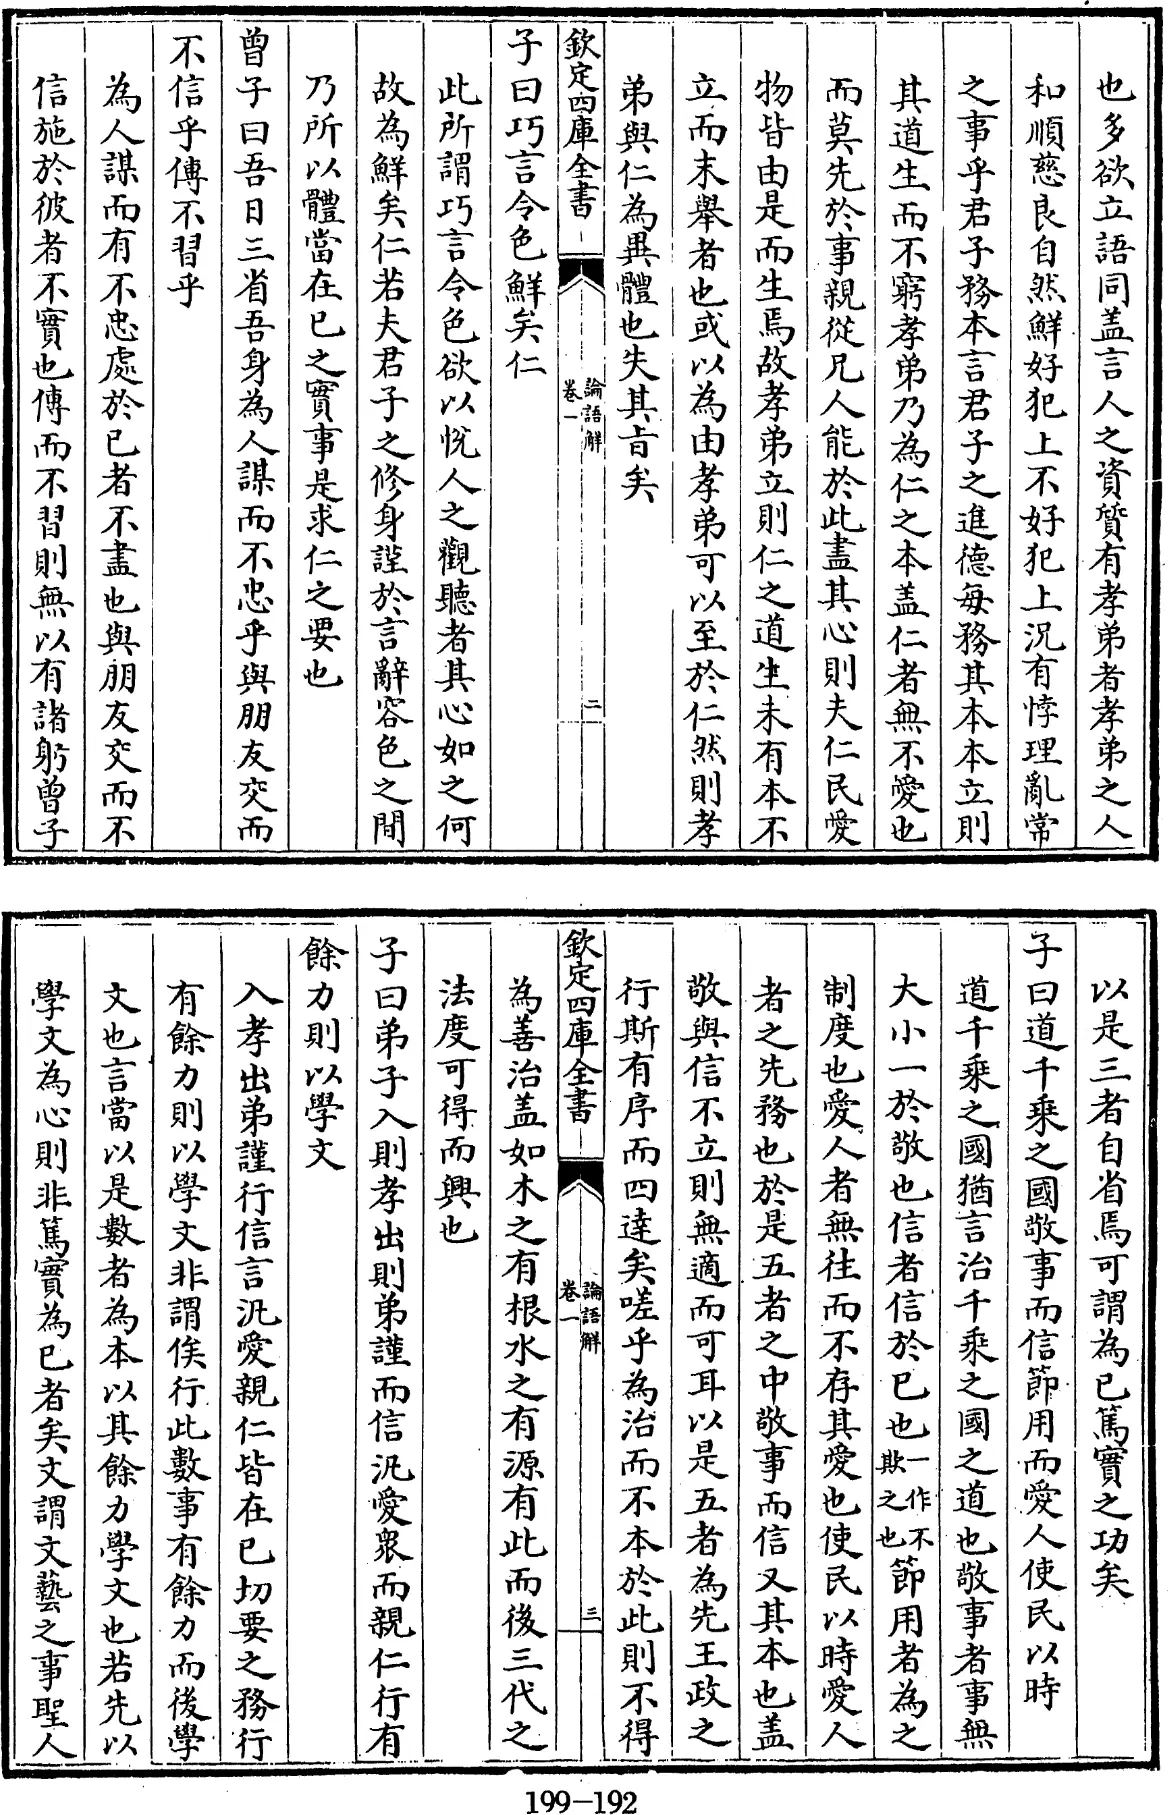 也多欲立語同盖言人之資質有孝弟者孝弟之人
和順慈良自然鮮好犯上不好犯上況有悖理亂常
之事乎君子務本言君子之進德每務其本本立則
其道生而不窮孝弟乃為仁之本盖仁者無不愛也
而莫先於事親從兄人能於此盡其心則夫仁民愛
物皆由是而生焉故孝弟立則仁之道生未有本不
立而末舉者也或以為由孝弟可以至於仁然則孝
弟與仁為異體也失其旨矣
欽定四庫全書
論語解
卷一
二
子曰巧言令色鮮矣仁
此所謂巧言令色欲以悅人之觀聽者其心如之何
故為鮮矣仁若夫君子之修身謹於言辭容色之間
乃所以體當在已之實事是求仁之要也
曾子曰吾日三省吾身為人謀而不忠乎與朋友交而
不信乎傳不習乎
為人謀而有不忠處於已者不盡也與朋友交而不
信施於彼者不實也傳而不習則無以有諸躬曾子
以是三者自省焉可謂為已篤實之功矣
子曰道千乘之國敬事而信節用而愛人使民以時
道千乘之國猶言治千乘之國之道也敬事者事無
大小一於敬也信者信於已也一作不欺之也節用者為之
制度也愛人者無往而不存其愛也使民以時愛人
者之先務也於是五者之中敬事而信又其本也盖
敬與信不立則無適而可耳以是五者為先王政之
行斯有序而四達矣嗟乎為治而不本於此則不得
欽定四庫全書
論語解
卷一
三
為善治盖如木之有根水之有源有此而後三代之
法度可得而興也
子曰弟子入則孝出則弟謹而信汎愛衆而親仁行有
餘力則以學文
入孝出弟謹行信言汎愛親仁皆在已切要之務行
有餘力則以學文非謂俟行此數事有餘力而後學
文也言當以是數者為本以其餘力學文也若先以
學文為心則非篤實為已者矣文謂文藝之事聖人
199-192